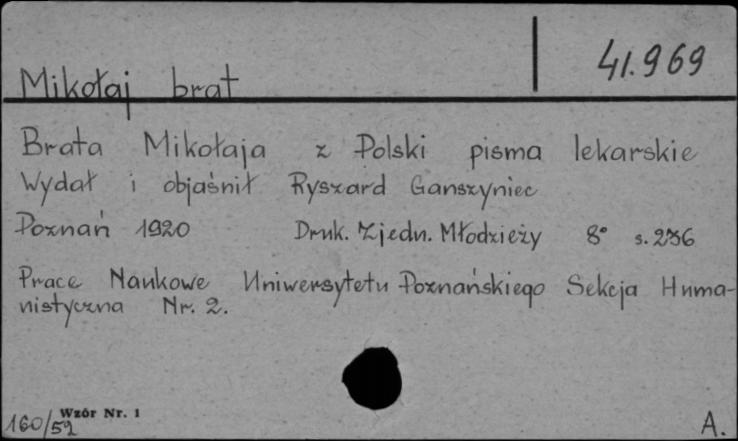 Mikołaj brat 41.969
Brata Mikołaja z Polski pisma lekarskie
Wydał i objaśnił Ryszard Ganszyniec
Poznań 1920 Druk. Zjedn. Młodzieży 8° s. 236
Prace Naukowe Uniwersytetu Poznańskiego Sekcja Huma-
nistyczna Nr. 2.
Wzór Nr. 1
160/59 A.